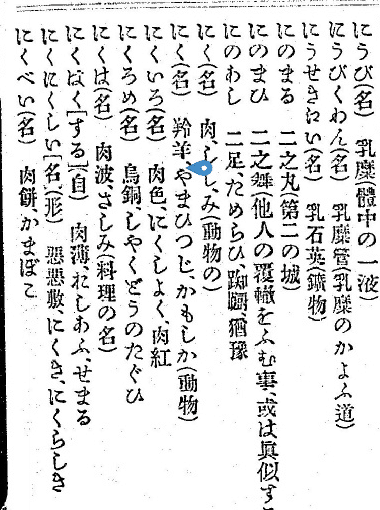 にうび(名) 乳糜(體中の一液)
にうびくわん(名) 乳糜管(乳糜のかよふ道)
にうせきえい(名) 乳石英(鑛物)
にのまる 二之丸第二の城
にのまひ 二之舞(他人の覆轍をふむ事、或は眞似すこ
にのわし 二足、ためらひ、踟躕、猶豫
にく(名) 肉、しし、み(動物の)
にく(名) 羚羊、やまひつじ、かもしか(動物)
にくいろ(名) 肉色、にくしよく、肉紅
にくろめ(名) 烏銅、しやくどうのたぐひ
にくは(名) 肉波、さしみ(料理の名)
にくはく[する](自) 肉薄、おしあふ、せまる
にくにくしい[名](形) 惡惡敷、にくき、にくらしき
にくべい(名) 肉餅、かまぼこ